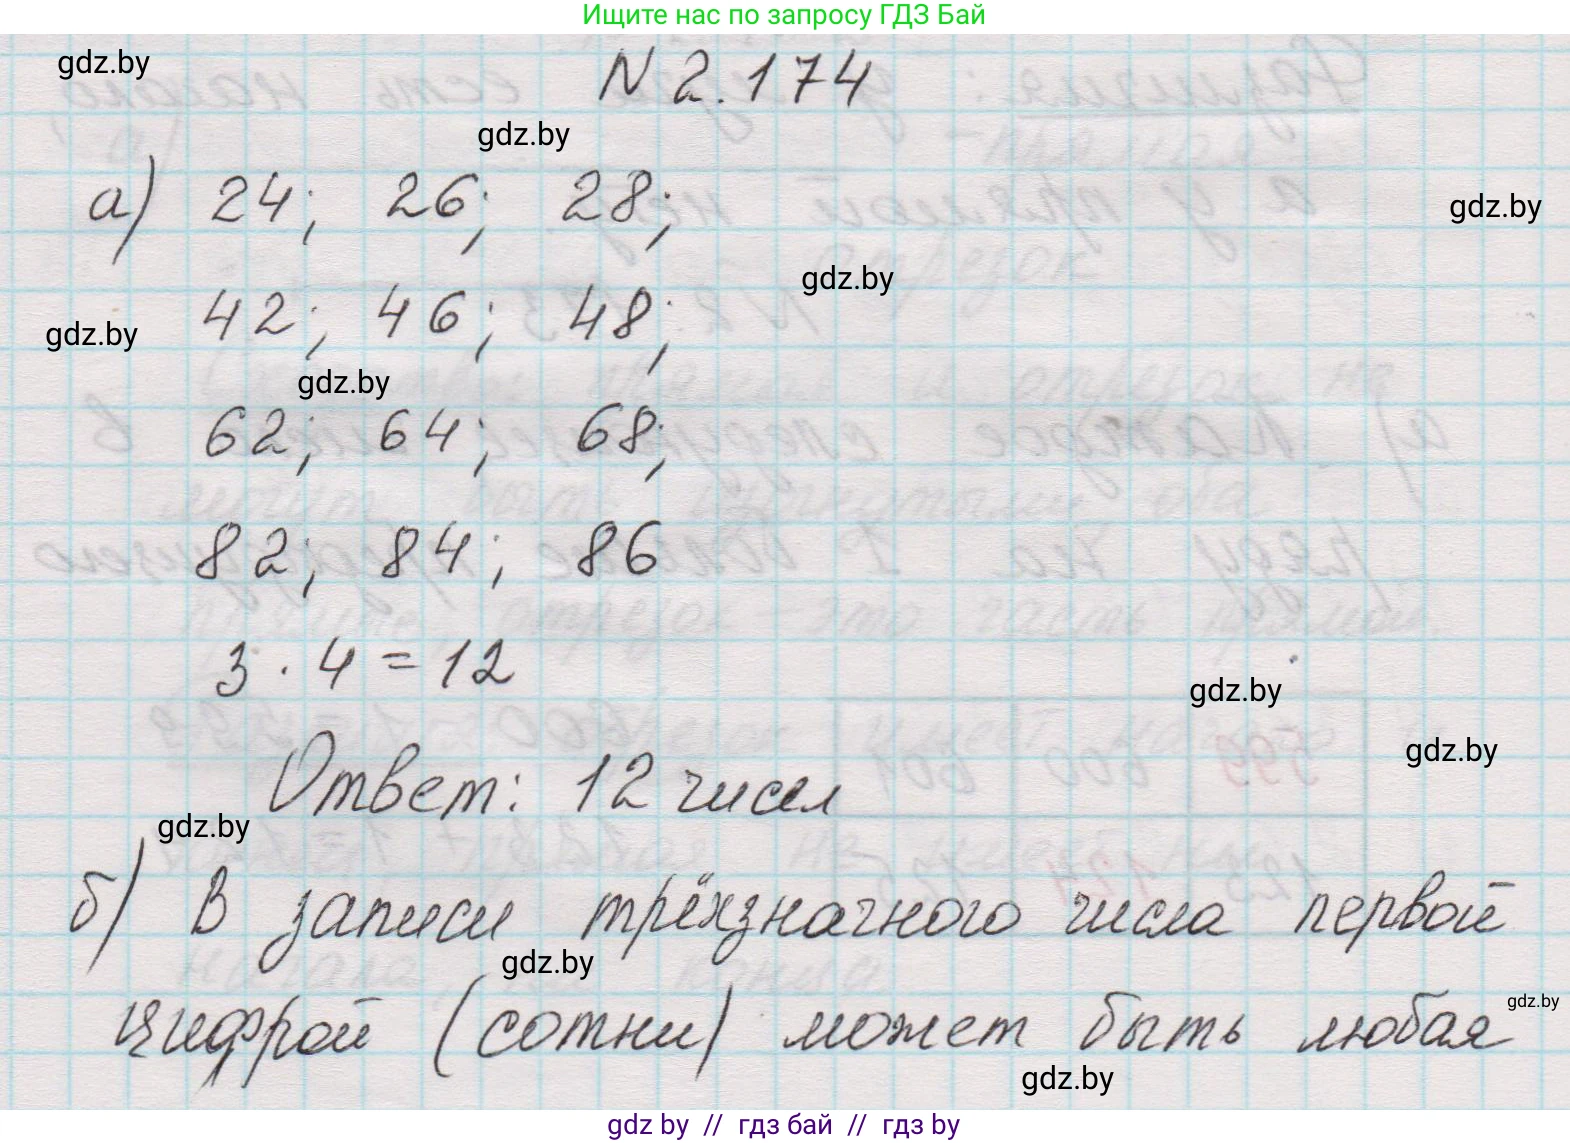 Ищите нас по запросу ГДЗ Бай
gdz.by
N 2.174
gdz.by
а) 24; 26; 28;
gdz.by
gdz.by
42; 46; 48;
gdz.by
gdz.by
62; 64; 68;
82; 84; 86
3 · 4 = 12
gdz.by
gdz.by
Ответ: 12 чисел
gdz.by
б) В записи трёхзначного числа первой
gdz.by
gdz.by
цифрой (сотни) может быть любая
gdz.by
gdz.by // гдз бай // гдз by